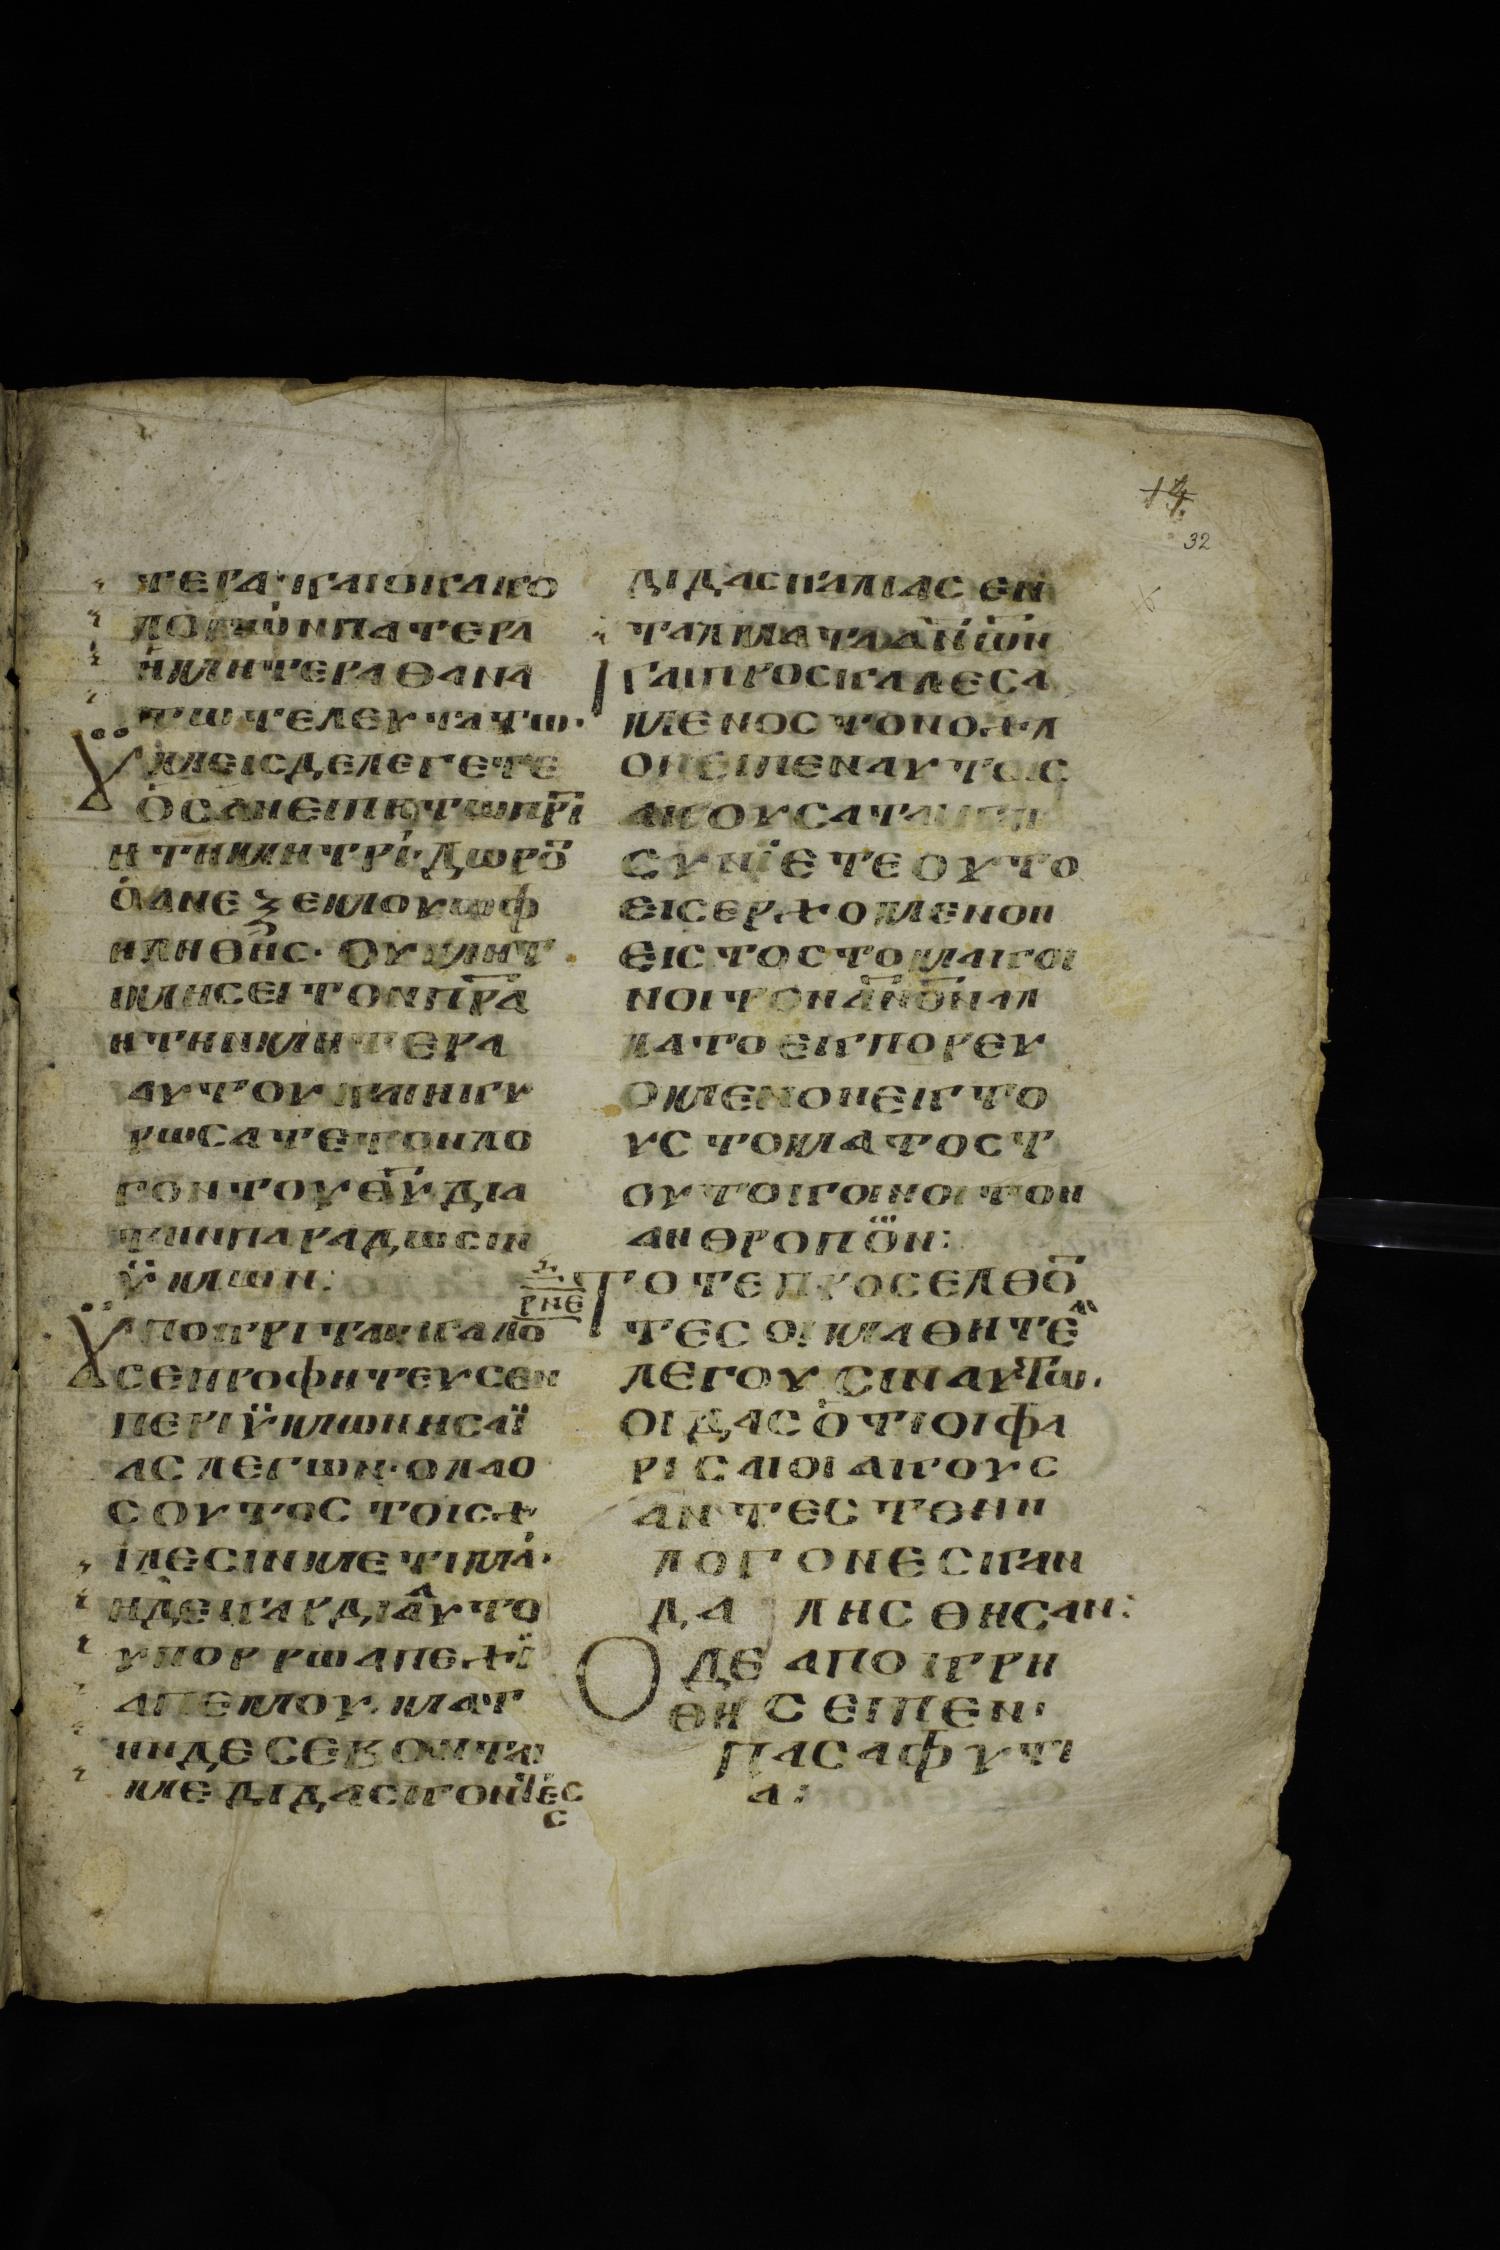 14
32
ΤΕΡΑ·ΚΑΙΟΚΑΚΟ
ΛΟΓΩΝΠΑΤΕΡΑ
ΗΜΗΤΕΡΑΘΑΝΑ
ΤΩΤΕΛΕΥΤΑΤΩ·
ΫΜΕΙΣΔΕΛΕΓΕΤΕ
ΟΣΑΝΕΙΠΗΤΩΠΡΙ
ΗΤΗΜΗΤΡΙ·ΔΩΡΟ
ΟΑΝΕΞΕΜΟΥΩΦ
ΗΛΗΘΗΣ·ΟΥΜΗΤ
ΙΜΗΣΕΙΤΟΝΠΡΑ
ΗΤΗΝΜΗΤΕΡΑ
ΑΥΤΟΥΚΑΙΗΚΥ
ΡΩΣΑΤΕΤΟΝΛΟ
ΓΟΝΤΟΥΘΥΔΙΑ
ΤΗΝΠΑΡΑΔΩΣΙΝ
ΫΜΩΝ:
ΫΠΟΚΡΙΤΑΙΚΑΛΟ
ΣΕΠΡΟΦΗΤΕΥΣΕΝ
ΠΕΡΙΫΜΩΝΗΣΑΪ
ΑΣΛΕΓΩΝ·ΟΛΑΟ
ΣΟΥΤΟΣΤΟΙΣΧ
ΙΛΕΣΙΝΜΕΤΙΜΑ·
ΗΔΕΚΑΡΔΙΑΑΥΤΟ
ΥΠΟΡΡΩΑΠΕΧΪ
ΑΠΕΜΟΥ·ΜΑΤ
ΗΝΔΕΣΕΒΟΝΤΑΙ
ΜΕΔΙΔΑΣΚΟΝΤΕΣ
Σ
ΔΙΔΑΣΚΑΛΙΑΣΕΝ
ΤΑΛΜΑΤΑΑΝΩΝ
ΚΑΙΠΡΟΣΚΑΛΕΣΑ
ΜΕΝΟΣΤΟΝΟΧΛ
ΟΝΕΙΠΕΝΑΥΤΟΙΣ
ΑΚΟΥΣΑΤΑΙΚΑΙ
ΣΥΝΪΕΤΕΟΥΤΟ
ΕΙΣΕΡΧΟΜΕΝΟΝ
ΕΙΣΤΟΣΤΟΜΑΚΟΙ
ΝΟΙΤΟΝΑΝΟΝΑΛ
ΛΑΤΟΕΚΠΟΡΕΥ
ΟΜΕΝΟΝΕΚΤΟ
ΥΣΤΟΜΑΤΟΣΤ
ΟΥΤΟΚΟΙΝΟΙΤΟΝ
ΑΝΘΡΟΠΟΝ:
ΡΝΕ
ΤΟΤΕΠΡΟΣΕΛΘΟ
ΤΕΣΟΙΜΑΘΗΤΕ
ΛΕΓΟΥΣΙΝΑΥΤΩ·
ΟΙΔΑΣΟΤΙΟΙΦΑ
ΡΙΣΑΙΟΙΑΚΟΥΣ
ΑΝΤΕΣΤΟΝΝ
ΛΟΓΟΝΕΣΚΑΝ
ΔΑ ΛΗΣΘΗΣΑΝ:
Ο ΔΕΑΠΟΚΡΗ
ΘΗΣΕΙΠΕΝ·
ΠΑΣΑΦΥΤΙ
Α: